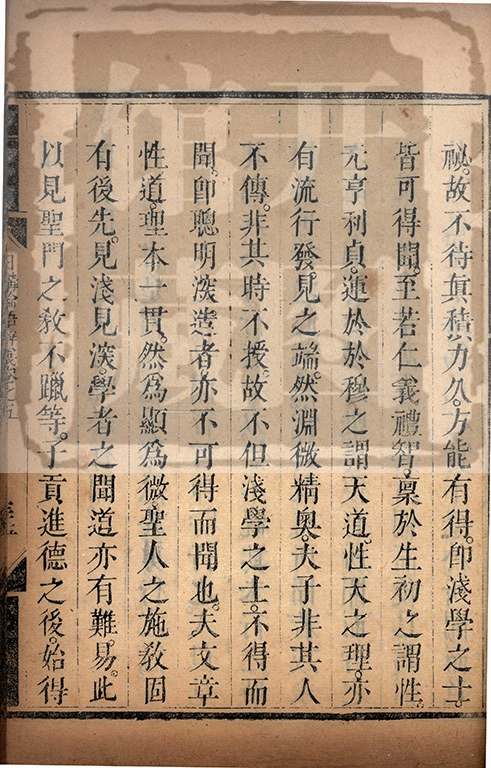 祕。故不待眞積力久。方能有得。卽淺學之士。
皆可得聞。至若仁義禮智。稟於生初之謂性。
元亨利貞。運於於穆之謂天道。性天之理。亦
有流行發見之端。然淵微精奧。夫子非其人
不傳。非其時不授。故不但淺學之士。不得而
聞。卽聰明㴱造者亦不可得而聞也。夫文章
性道理本一貫。然爲顯爲微。聖人之施敎固
有後先。見淺見㴱。學者之聞道亦有難易。此
以見聖門之敎不躐等。子貢進德之後。始得